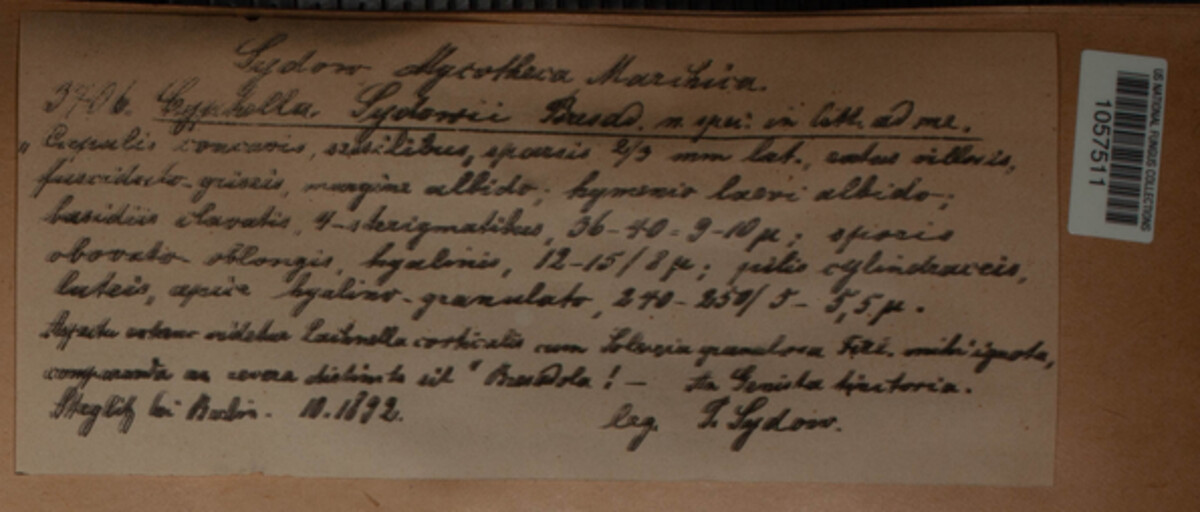 Sydow Mycotheca Marchica.
3706. Cyphella Sydowii Bresad. n. spec. in litt. ad me.
„Cupulis concavis, sessilibus, sparsis 2/3 mm lat., extus villosis,
griseis, margine albido; hymenio laevi albido;
basidiis clavatis, 4-sterigmatibus, 36-40 = 9-10 µ; sporis
obovato-oblongis, hyalinis, 12-15/8 µ; pilis cylindraceis,
luteis, apice hyalino-granulato, 240-250/5-5,5 µ.
videtur corticalis cum Solenia granulosa Fckl. mihi ignota,
comparanda an revera distincta sit" Bresadola! — An Genista tinctoria.
Steglitz bei Berlin. 10.1892. leg. P. Sydow.
US NATIONAL FUNGUS COLLECTIONS
1057511